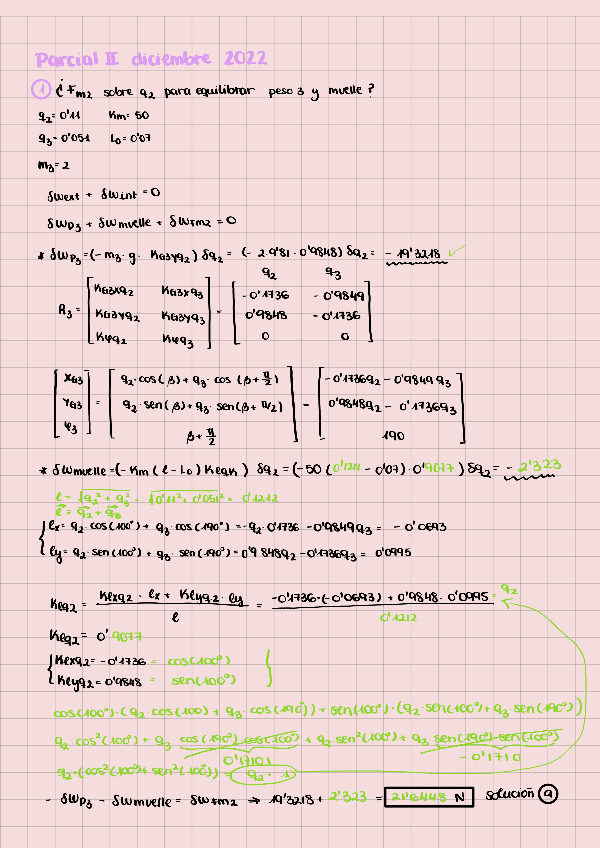 Parcial II diciembre 2022
1 ¿Fm2 sobre q2 para equilibrar peso 3 y muelle?
q2= 0'11 Km= 50
q3= 0'051 L0= 0'07
m3= 2
δWext + δWint = 0
δWp3 + δWmuelle + δWFm2 = 0
* δWp3 = (- m3 · g · KG3yq2) δq2 = (- 2·9'81 · 0'9848) δq2 = - 19'3218 ✓
q2 q3
A3 = [ KG3xq2 KG3xq3 ] = [ -0'1736 - 0'9849 ]
[ KG3yq2 KG3yq3 ] [ 0'9848 - 0'1736 ]
[ Kφq2 Kφq3 ] [ 0 0 ]
[ XG3 ] = [ q2·cos(β) + q3·cos(β + π/2) ] = [ -0'1736q2 - 0'9849q3 ]
[ YG3 ] [ q2·sen(β) + q3·sen(β + π/2) ] [ 0'9848q2 - 0'1736q3 ]
[ φ3 ] [ β + π/2 ] [ 190 ]
* δWmuelle = (- Km (l - L0) Keqk) δq2 = (-50 (0'1211 - 0'07) · 0'9077) δq2 = - 2'323
l = √q2² + q3² = √0'11² + 0'051² = 0'1212
l = q2 + q3
lx = q2·cos(100°) + q3·cos(190°) = -q2·0'1736 - 0'9849q3 = - 0'0693
ly = q2·sen(100°) + q3·sen(190°) = 0'9848q2 - 0'1736q3 = 0'0995
Keq2 = Kexq2 · lx + Kelyq2 · ly / l = -0'1736·(-0'0693) + 0'9848·0'0995 / 0'1212 = q2
Keq2 = 0'9077
Kexq2 = -0'1736 = cos(100°)
Keyq2 = 0'9848 = sen(100°)
cos(100°)·(q2·cos(100) + q3·cos(190°)) + sen(100°)·(q2·sen(100°) + q3·sen(190°))
q2·cos²(100°) + q3 cos(190°)·cos(100°) + q2·sen²(100°) + q3·sen(190°)·sen(100°)
0'17101 - 0'1710
q2·(cos²(100°) + sen²(100°)) = q2·1
- δWp3 - δWmuelle = δWFm2 → 19'3218 + 2'323 = 21'6448 N Solución a